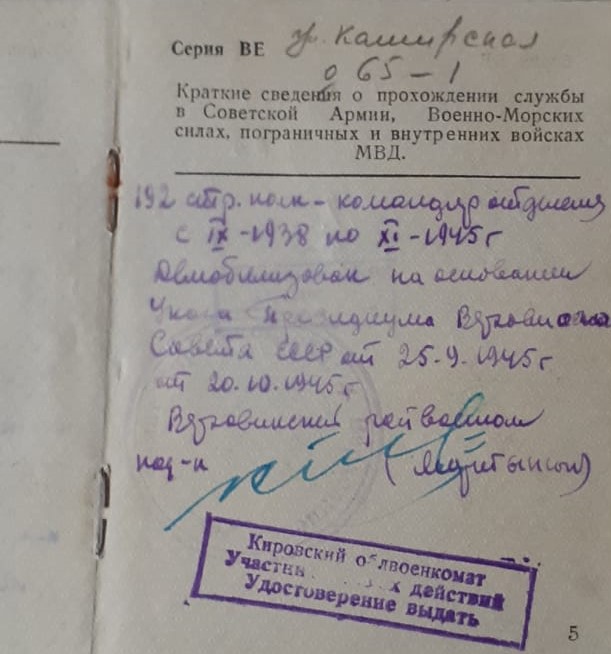 Серия ВЕ гр. Каширская
д 65-1
Краткие сведения о прохождении службы
в Советской Армии, Военно-Морских
силах, пограничных и внутренних войсках
МВД.
192 стр. полк - командир отделения
с IX-1938 по XI-1945 г
Демобилизован на основании
Указа Президиума Верховного
Совета СССР от 25.9.1945 г
от 20.10.1945 г.
райвоенком
Кировский облвоенкомат
Участник х действий
Удостоверение выдать
5